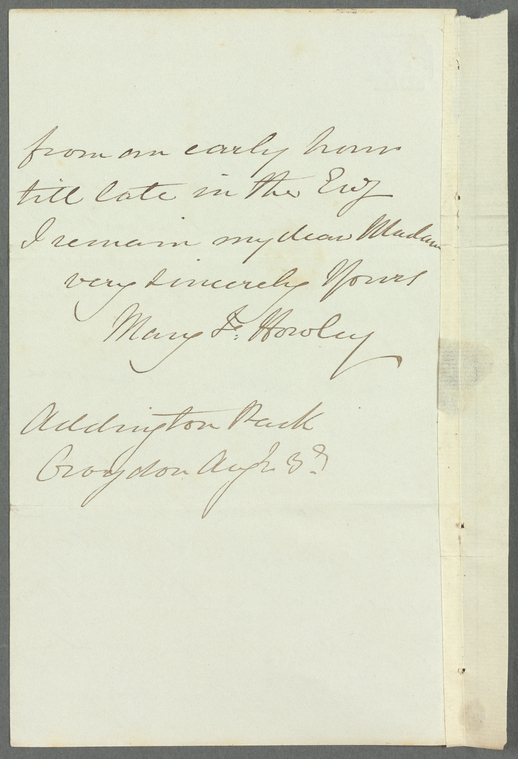 from an early hour
till late in the Evg
I remain my dear Madam
very sincerely Yours
Mary Fs. Howley
Addington Park
Croydon Augt. 3d